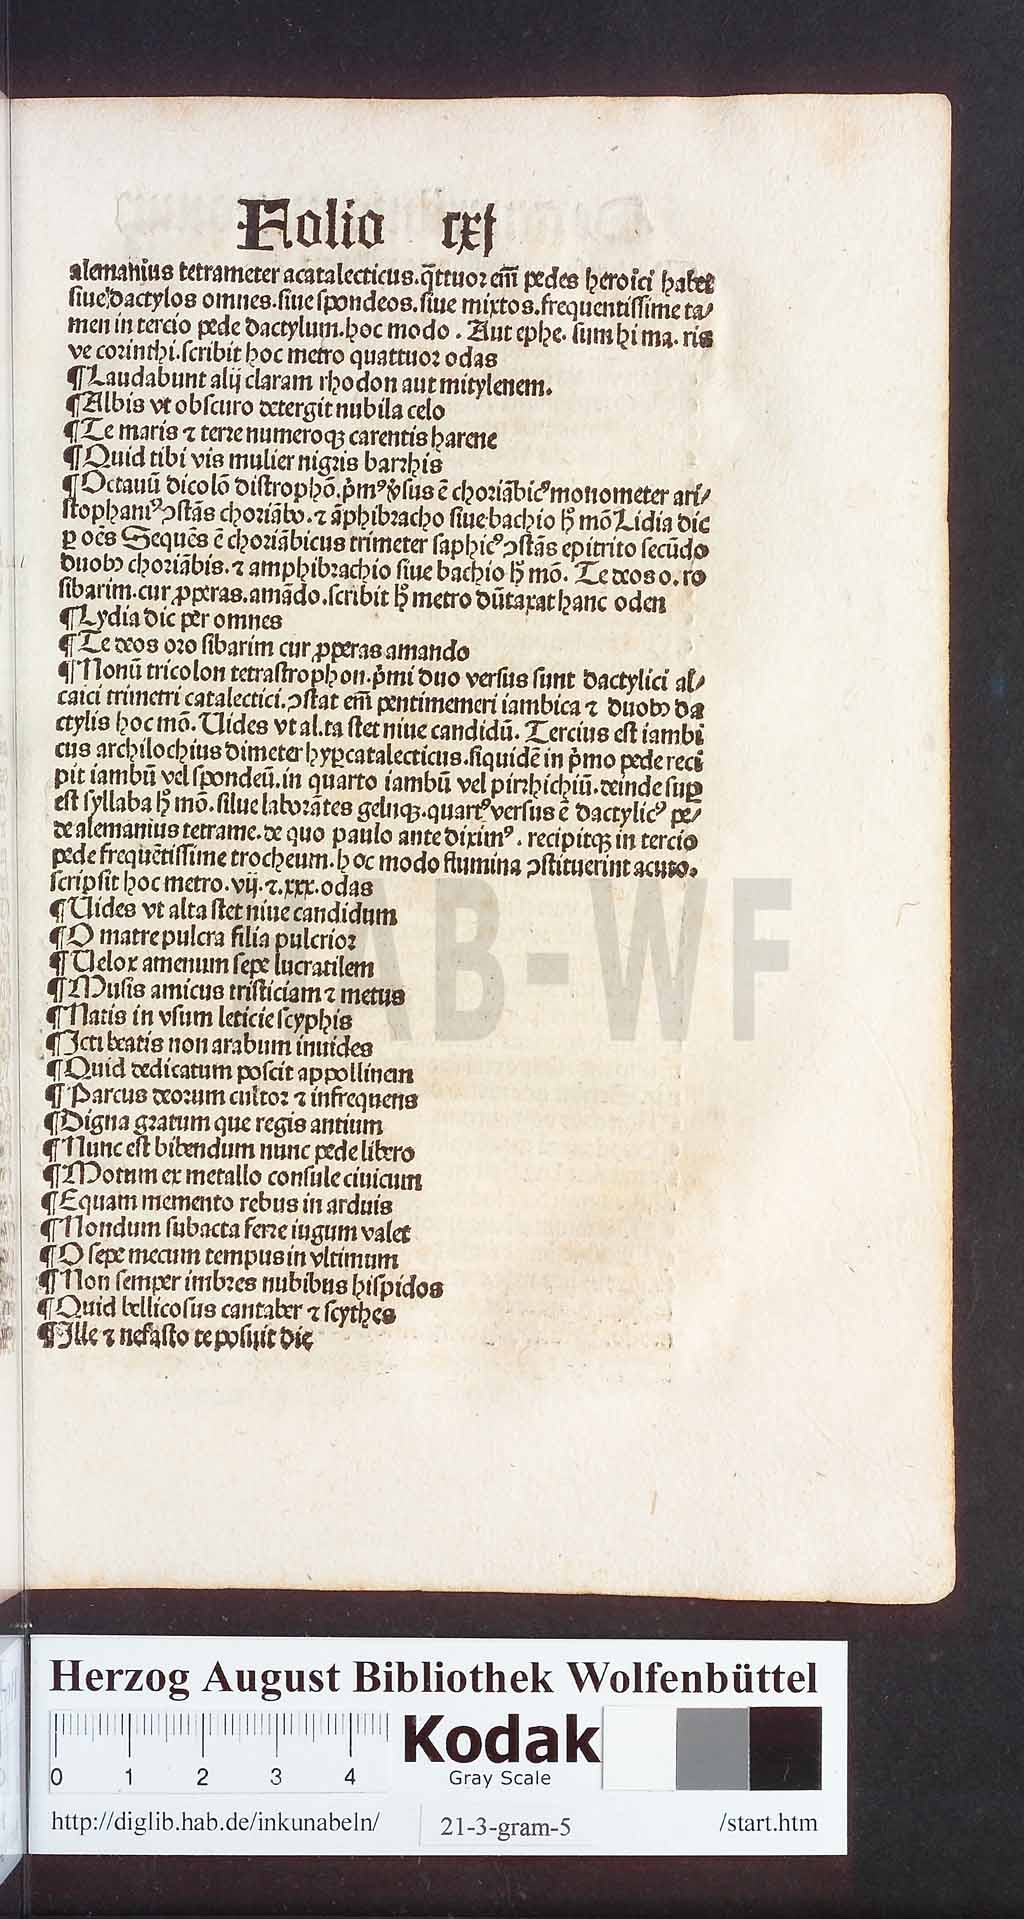 Folio cxj
alemanius tetrameter acatalecticus.q̄ttuor em̄ pedes heroici habet
siue dactylos omnes.siue spondeos.siue mixtos.frequentissime ta⸗
men in tercio pede dactylum.hoc modo. Aut ephe. sum hi ma. ris
ve corinthi.scribit hoc metro quattuor odas
¶Laudabunt alij claram rhodon aut mitylenem.
¶Albis vt obscuro detergit nubila celo
¶Te maris ⁊ terre numeroqꝫ carentis harene
¶Quid tibi vis mulier nigris barrhis
¶Octauū dicolō distrophō.p̄mꝰ v̓sus ē choriābicꝰ monometer ari⸗
stophaniꝰ ꝯstās choriābo.⁊ āphibracho siue bachio hͦ mō Lidia dic
ꝑ oēs Sequēs ē choriābicus trimeter saphicꝰ ꝯstās epitrito secūdo
duobꝰ choriābis.⁊ amphibrachio siue bachio hͦ mō. Te deos o.ro
sibarim.cur ꝓperas.amādo.scribit hͦ metro dūtaxat hanc oden
¶Lydia dic per omnes
¶Te deos oro sibarim cur ꝓperas amando
¶Nonū tricolon tetrastrophon.p̄mi duo versus sunt dactylici al⸗
caici trimetri catalectici.ꝯstat em̄ pentimemeri iambica ⁊ duobꝰ da
ctylis hoc mō. Uides vt al.ta stet niue candidū. Tercius est iambi
cus archilochius dimeter hyꝑcatalecticus.siquidē in p̄mo pede reci
pit iambū vel spondeū.in quarto iambū vel pirrhichiū.deinde suꝑ
est syllaba hͦ mō. silue laborātes geluqꝫ.quartꝰ versus ē dactylicꝰ pe⸗
de alemanius tetrame.de quo paulo ante diximꝰ. recipitqꝫ in tercio
pede frequētissime trocheum.hoc modo flumina ꝯstituerint acuto.
scripsit hoc metro.vij.⁊.xxx.odas
¶Uides vt alta stet niue candidum
¶O matre pulcra filia pulcrior
¶Uelox amenum sepe lucratilem
¶Musis amicus tristiciam ⁊ metus
¶Natis in vsum leticie scyphis
¶Icti beatis non arabum inuides
¶Quid dedicatum poscit appollinem
¶Parcus deorum cultor ⁊ infrequens
¶Digna gratum que regis antium
¶Nunc est bibendum nunc pede libero
¶Motum ex metallo consule ciuicum
¶Equam memento rebus in arduis
¶Nondum subacta ferre iugum valet
¶O sepe mecum tempus in vltimum
¶Non semper imbres nubibus hispidos
¶Quid bellicosus cantaber ⁊ scythes
¶Ille ⁊ nefasto te posuit die
HAB-WF
Herzog August Bibliothek Wolfenbüttel
0 1 2 3 4
Kodak
Gray Scale
http://diglib.hab.de/inkunabeln/ 21-3-gram-5 /start.htm